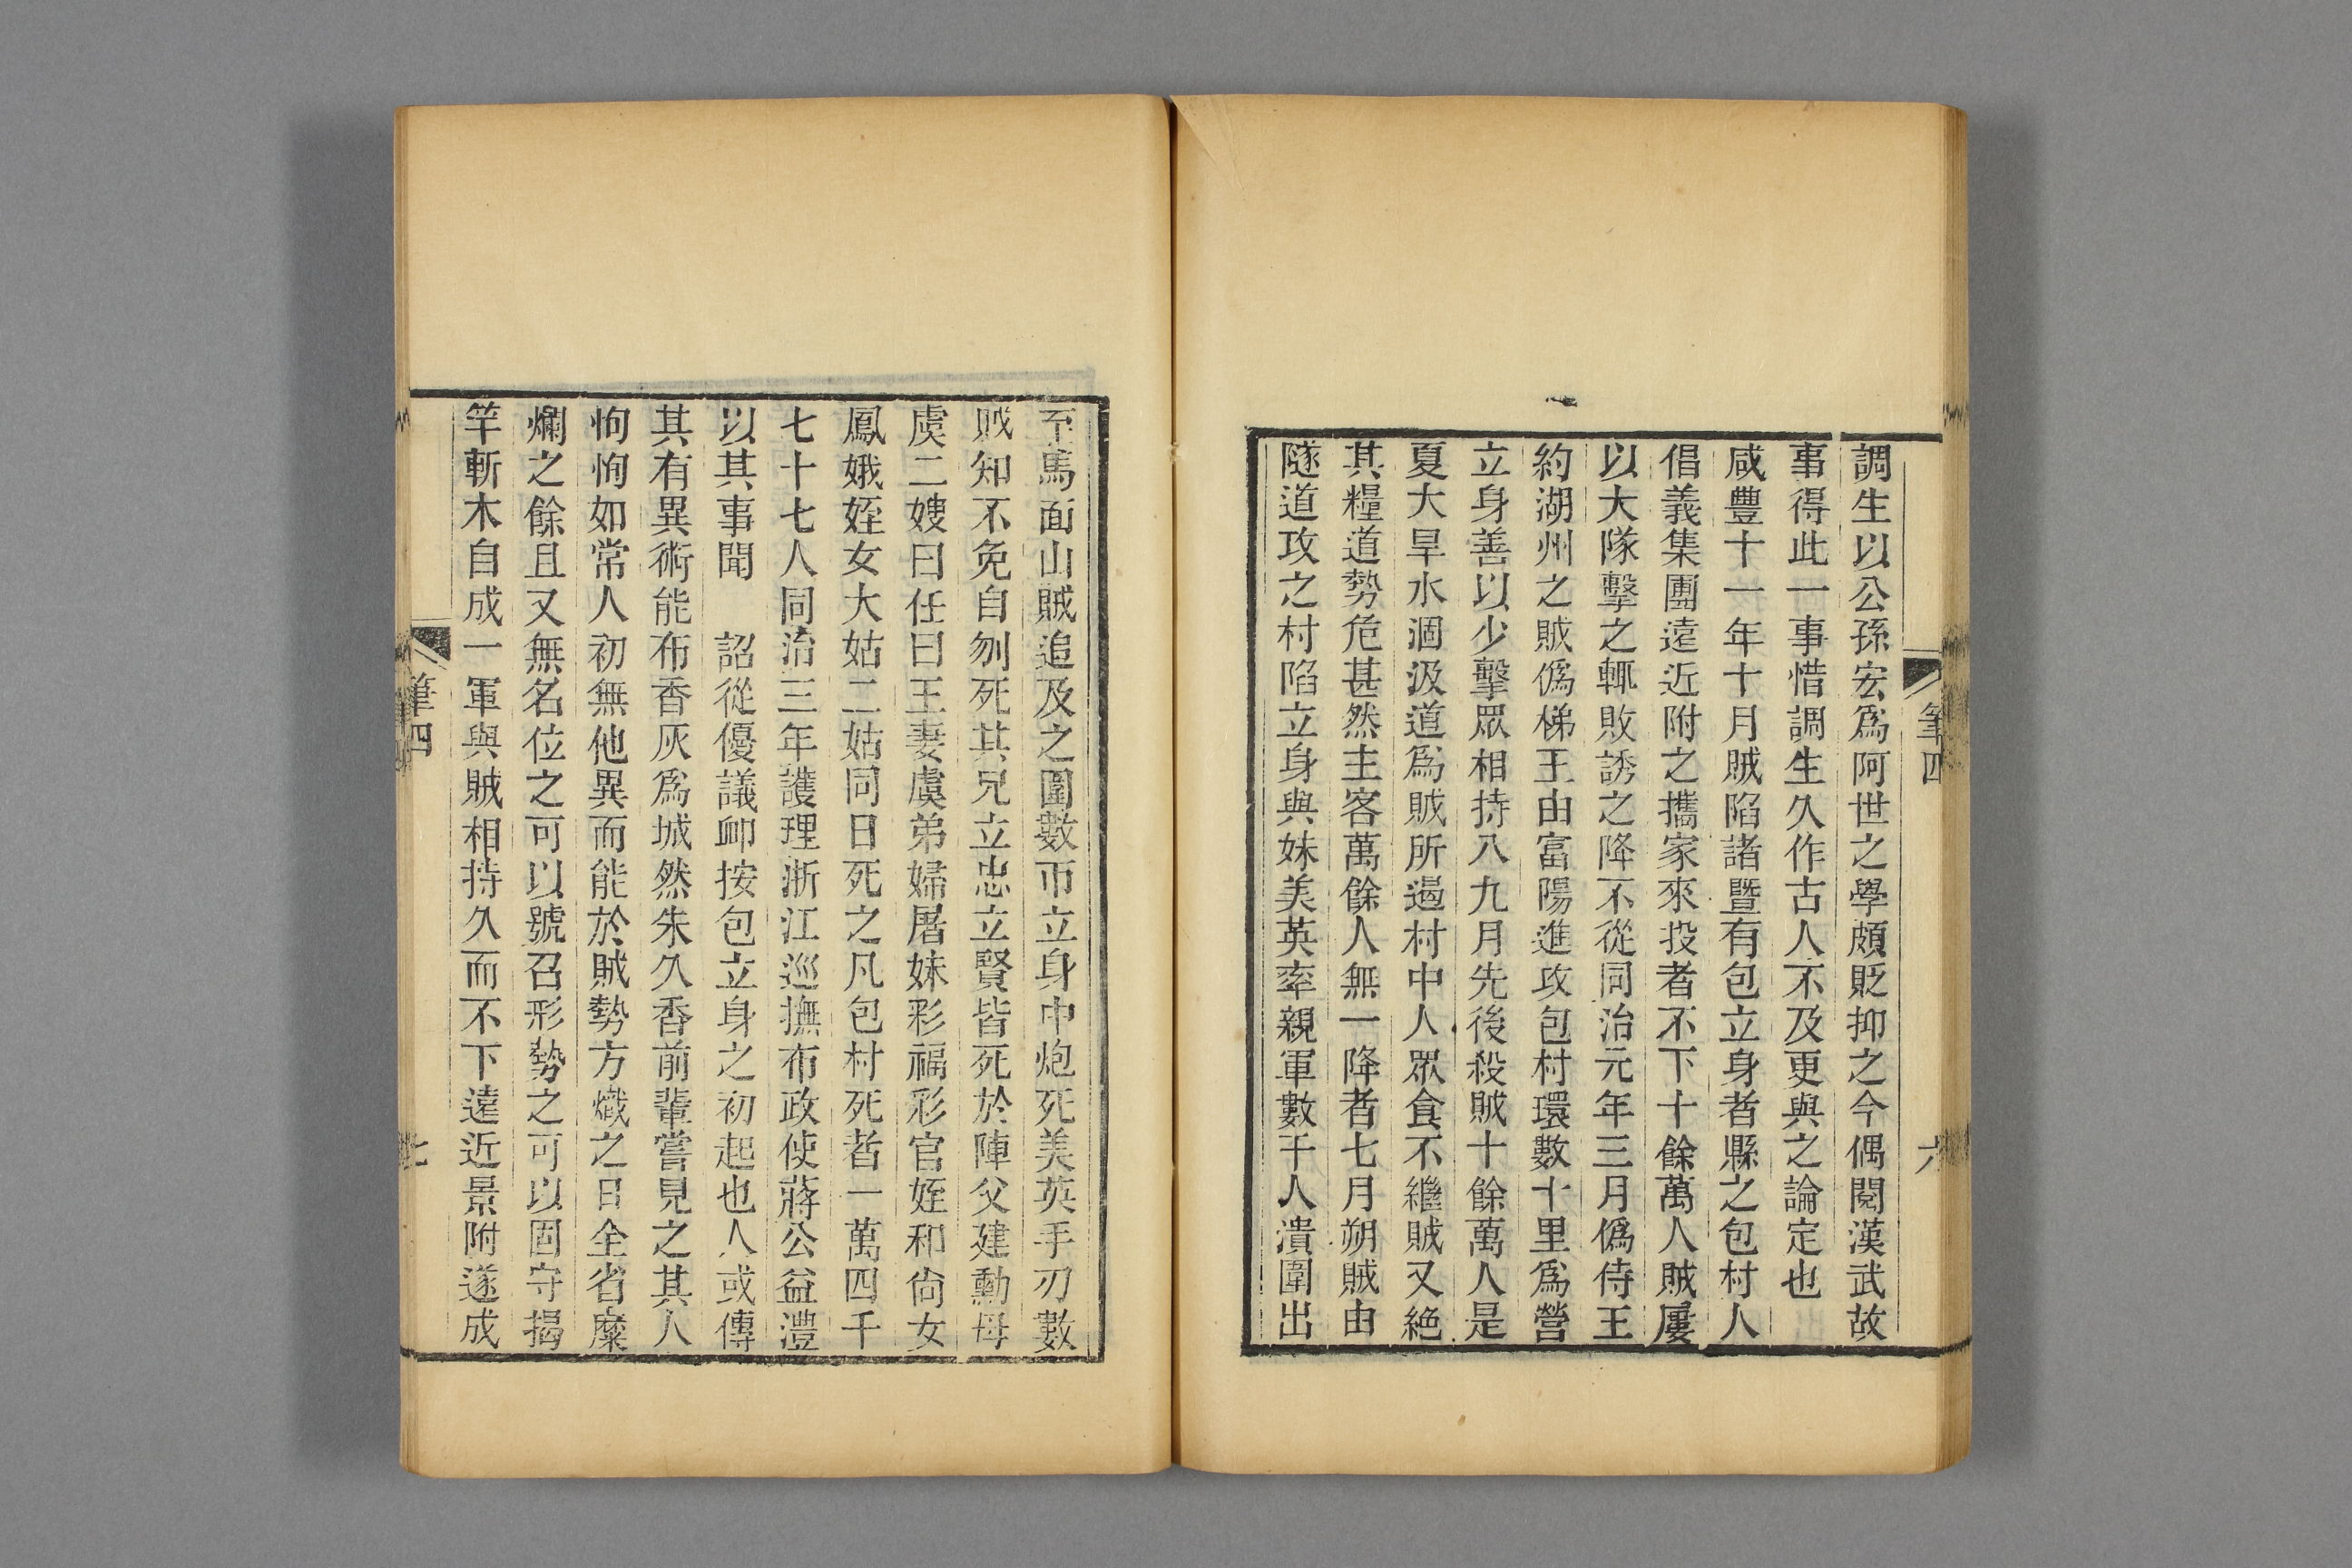 筆四
六
調生以公孫宏爲阿世之學頗貶抑之今偶閱漢武故
事得此一事惜調生久作古人不及更與之論定也
咸豐十一年十月賊陷諸暨有包立身者縣之包村人
倡義集團遠近附之攜家來投者不下十餘萬人賊屢
以大隊擊之輒敗誘之降不從同治元年三月僞侍王
約湖州之賊僞梯王由富陽進攻包村環數十里爲營
立身善以少擊眾相持八九月先後殺賊十餘萬人是
夏大旱水涸汲道爲賊所遏村中人眾食不繼賊又絕
其糧道勢危甚然主客萬餘人無一降者七月朔賊由
隧道攻之村陷立身與妹美英率親軍數千人潰圍出
至馬面山賊追及之圍數帀立身中炮死美英手刃數
賊知不免自刎死其兄立忠立賢皆死於陣父建勳母
虞二嫂曰任曰王妻虞弟婦屠妹彩福彩官姪和尙女
鳳娥姪女大姑二姑同日死之凡包村死者一萬四千
七十七人同治三年護理浙江巡撫布政使蔣公益澧
以其事聞　詔從優議卹按包立身之初起也人或傳
其有異術能布香灰爲城然朱久香前輩嘗見之其人
恂恂如常人初無他異而能於賊勢方熾之日全省糜
爛之餘且又無名位之可以號召形勢之可以固守揭
竿斬木自成一軍與賊相持久而不下遠近景附遂成
筆四
七